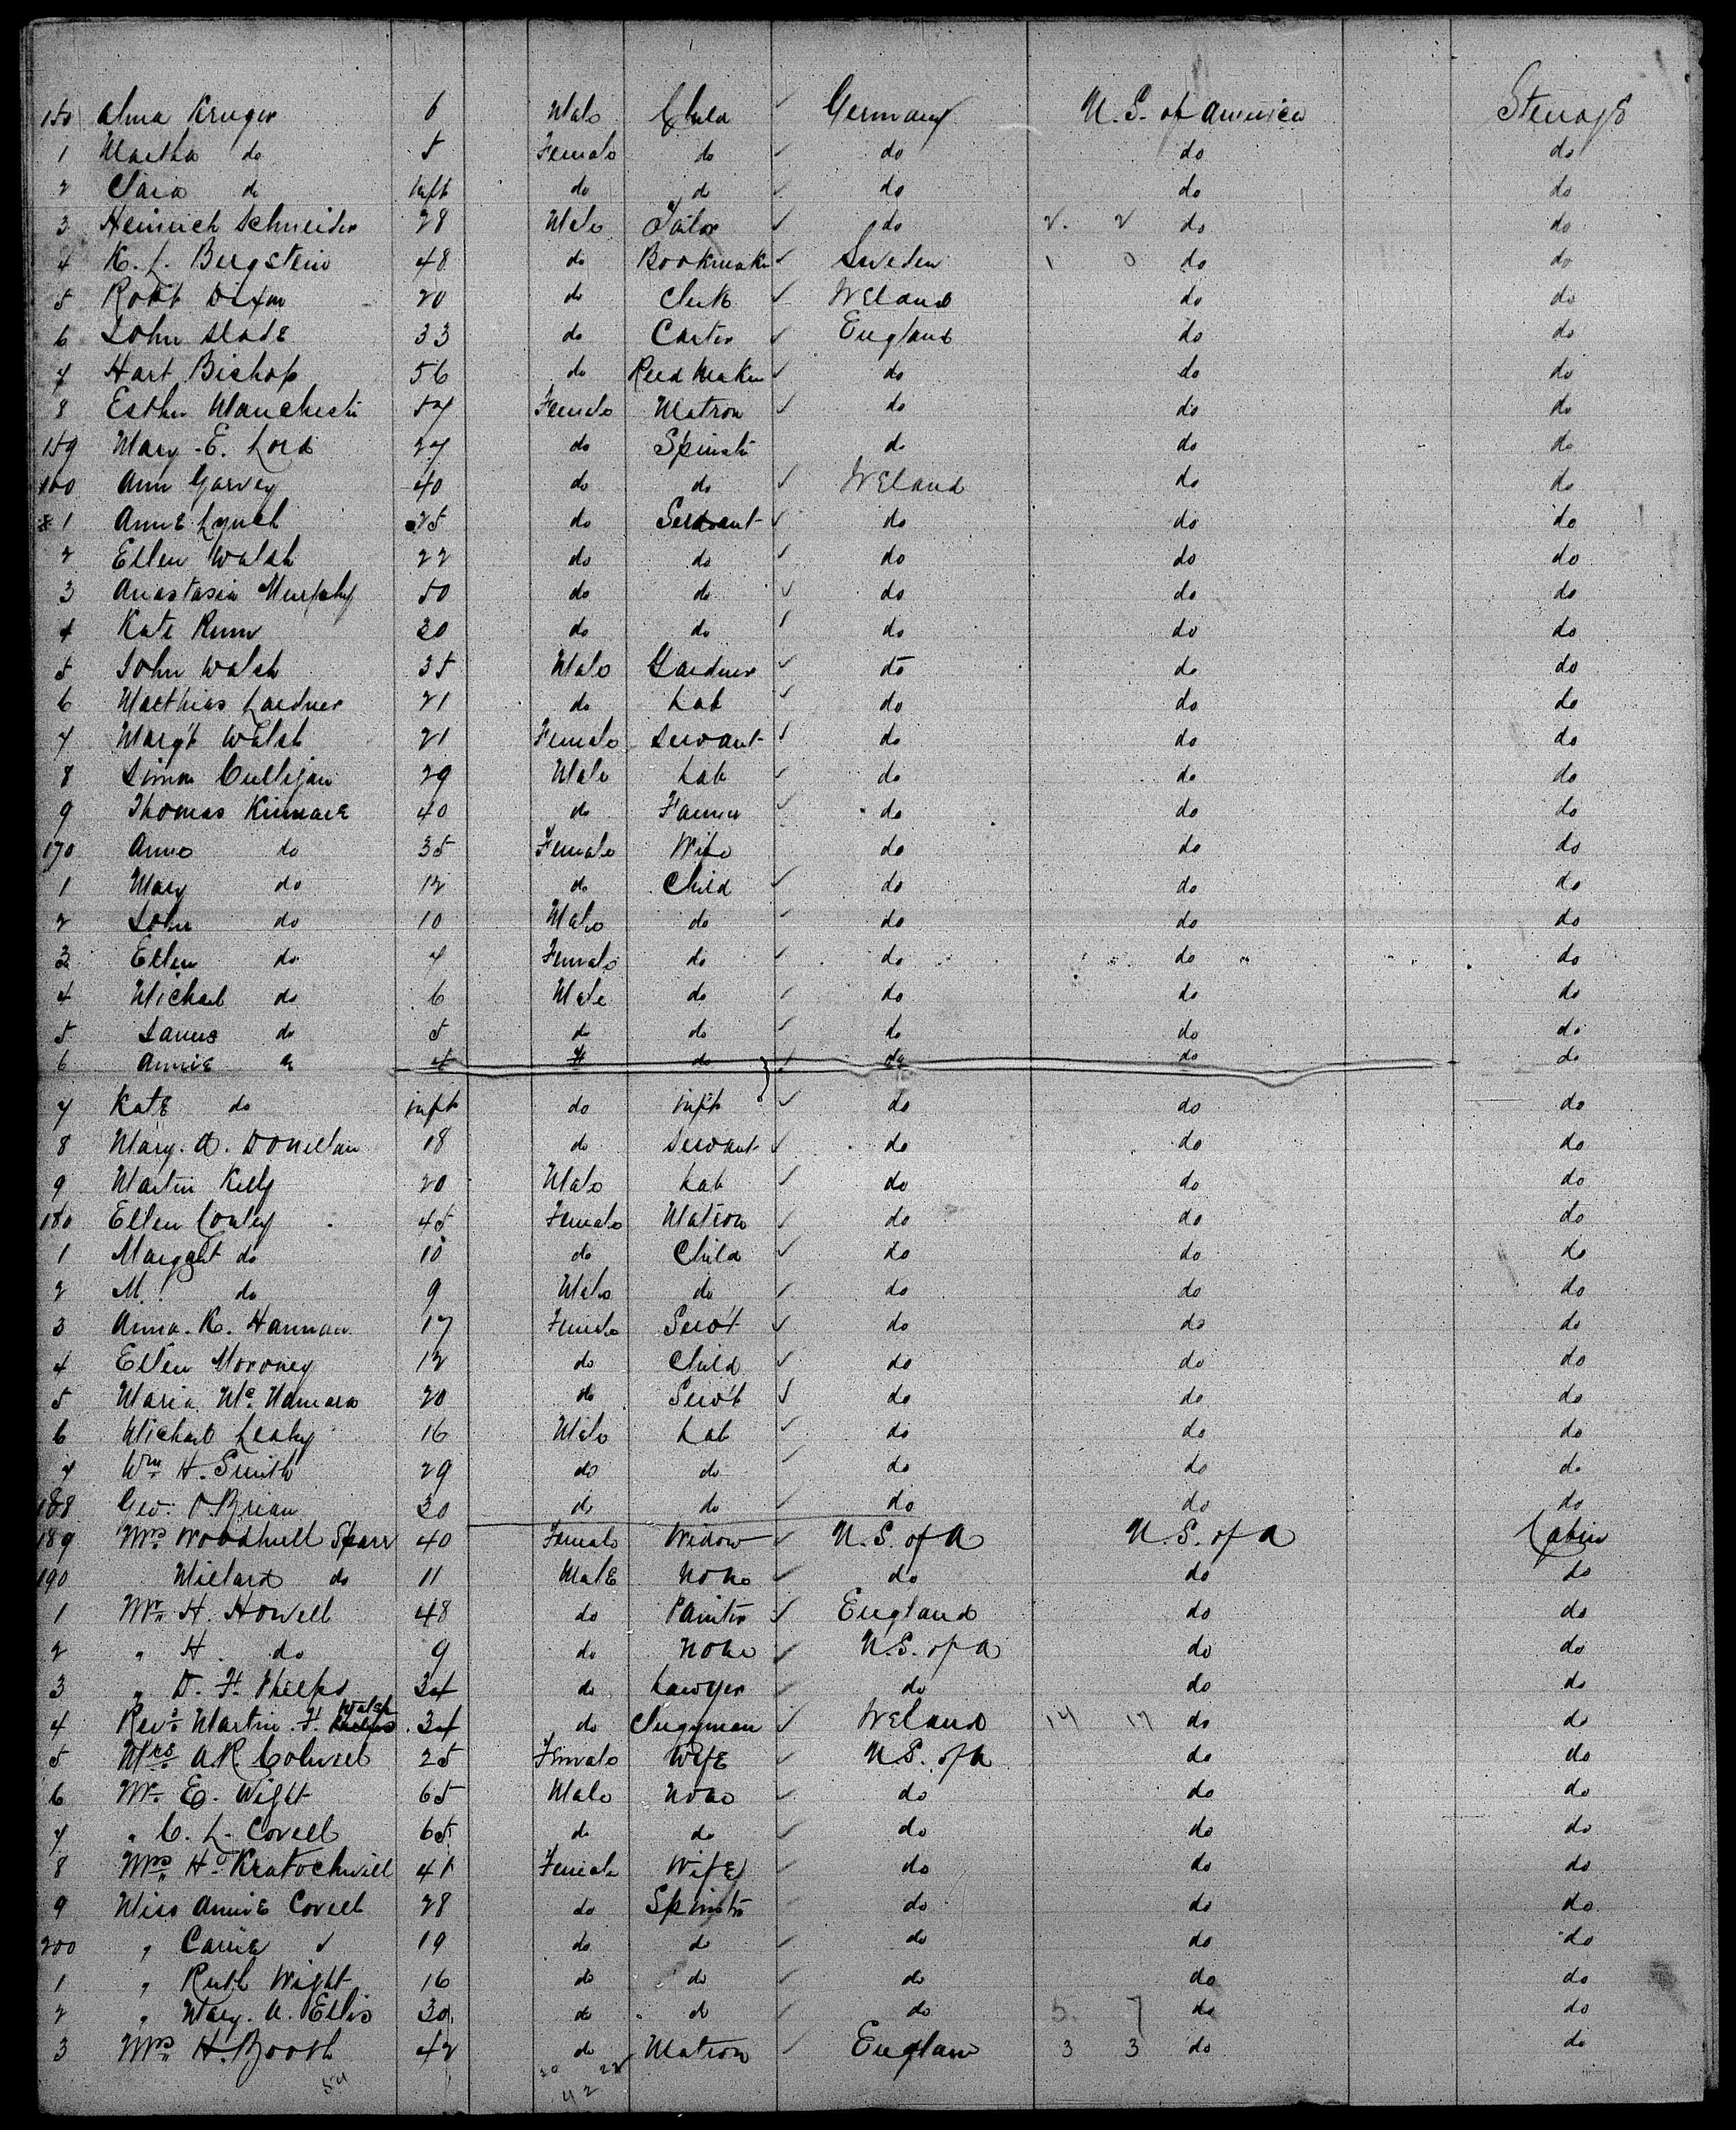 150 Alma Kruger 6 Male Child ✓ Germany U.S. of America Steerage
1 Martha do 5 Female do ✓ do do do
2 Clara do Inft do do ✓ do do do
3 Heinrich Schneider 28 Male Tailor ✓ do 2. 2 do do
4 K. L. Bergstein 48 do Bookmaker ✓ Sweden 1 0 do do
5 Robt Dixon 20 do Clerk ✓ Ireland do do
6 John Slade 33 do Carter ✓ England do do
7 Hart Bishop 56 do Reed Maker ✓ do do do
8 Esther Manchester 57 Female Matron ✓ do do do
159 Mary E. Lord 27 do Spinster do do do
160 Ann Garvey 40 do do ✓ Ireland do do
1 Anne Lynch 25 do Servant ✓ do do do
2 Ellen Walsh 22 do do ✓ do do do
3 Anastasia Murphy 50 do do ✓ do do do
4 Kate 20 do do ✓ do do do
5 John Walsh 35 Male Gardner ✓ do do do
6 Matthias Lardner 21 do Lab ✓ do do do
7 Margt Walsh 21 Female Servant ✓ do do do
8 Simon Culligan 29 Male Lab ✓ do do do
9 Thomas Kinnare 40 do Farmer ✓ do do do
170 Anne do 35 Female Wife do do do
1 Mary do 12 do Child ✓ do do do
2 John do 10 Male do ✓ do do do
3 Ellen do 7 Female do ✓ do do do
4 Michael do 6 Male do ✓ do do do
5 James do 5 do do ✓ do do do
6 Annie do 4 F do ✓ do do do
7 Kate do inft do inft ✓ do do do
8 Mary. A. Donellan 18 do Servant ✓ do do do
9 Martin Kelly 20 Male Lab ✓ do do do
180 Ellen Conley 45 Female Matron ✓ do do do
1 Margaret do 10 do Child ✓ do do do
2 M. do 9 Male do ✓ do do do
3 Anna. K. Hannan 17 Female Servt ✓ do do do
4 Ellen Moroney 12 do Child ✓ do do do
5 Maria McNamara 20 do Servt ✓ do do do
6 Michael Leahy 16 Male Lab ✓ do do do
7 Wm H. Smith 29 do do ✓ do do do
188 Geo: O'Brian 20 do do ✓ do do do
189 Mrs Woodhull Sparr 40 Female Widow ✓ U.S. of A U.S. of A Cabin
190 Willard do 11 Male None ✓ do do do
1 Mr. H. Howell 48 do Painter ✓ England do do
2 " H. do 9 do None ✓ U.S. of A do do
3 " D. F. Phelps 34 do Lawyer ✓ do do do
4 Revd. Martin. F. Walsh 34 do Clergyman ✓ Ireland 17 17 do do
5 Mrs. A.R. Colwell 25 Female Wife ✓ U.S. of A do do
6 Mr. E. Wight 65 Male None ✓ do do do
7 " C. L. Covell 65 do do ✓ do do do
8 Mrs. H. Kratochwill 41 Female Wife ✓ do do do
9 Miss Annie Covell 28 do Spinster do do do
200 " Carrie do 19 do do ✓ do do do
1 " Ruth Wight 16 do do ✓ do do do
2 " Mary. A. Ellis 30 do do ✓ do 5 7 do do
3 Mrs. H. Booth 42 do Matron ✓ England 3 3 do do
54 20 22
42